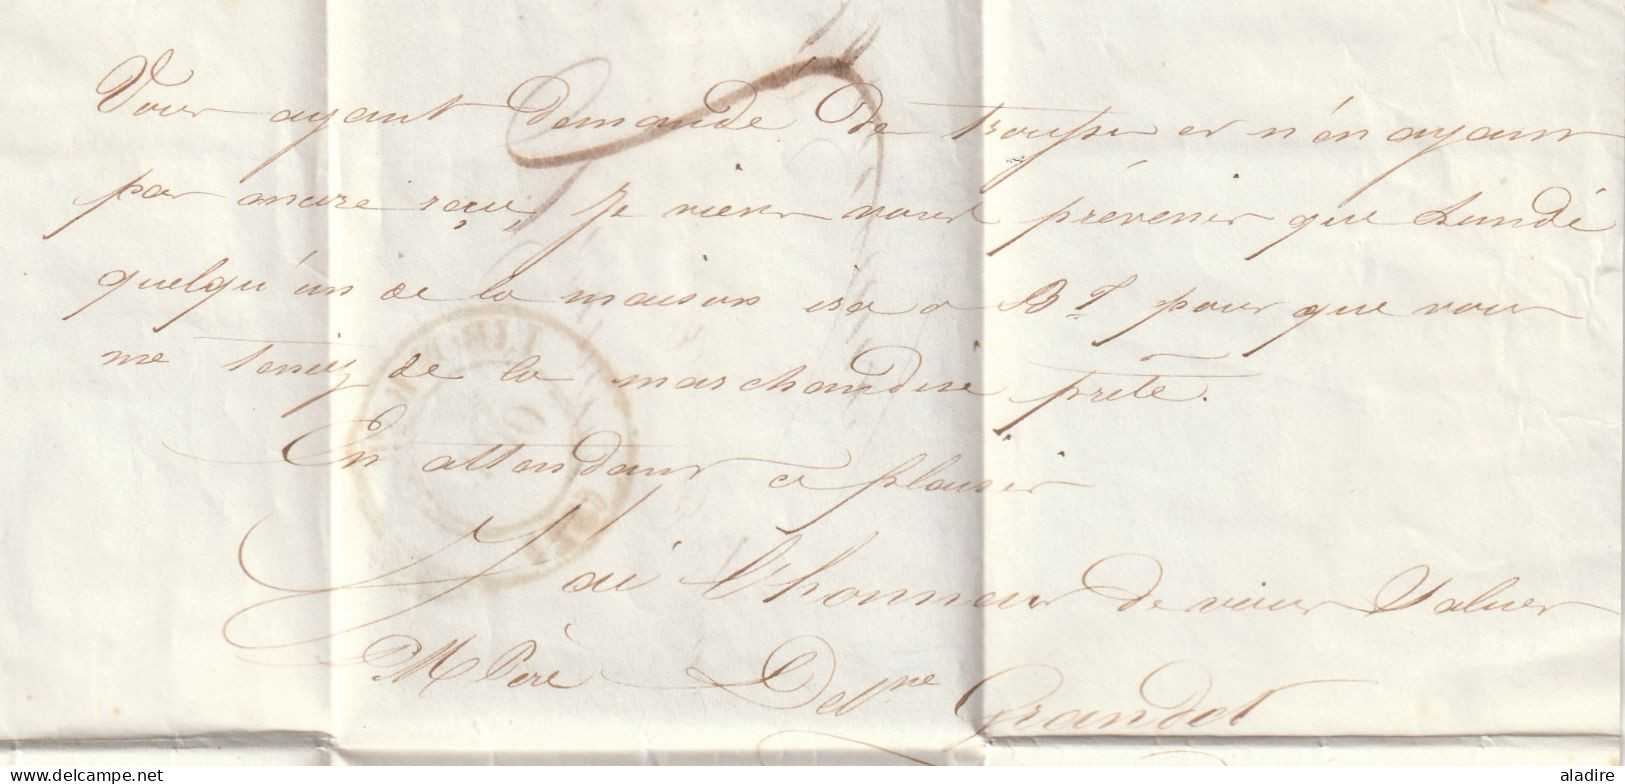 Vous ayant demandé de troupin et n'en ayant
pas encore reçu, je viens vous prévenir que Lundi
quelqu'un de la maison ira a B.t pour que vous
me teniez de la marchandise prete.
En attendant ce plaisir
J'ai l'honneur de vous Saluer
Grandot
aladire
delcampe.net